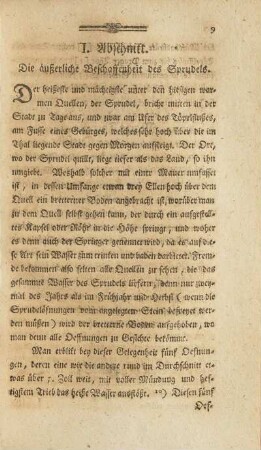 9
I. Abschnitt.
Die äußerliche Beschaffenheit des Sprudels.
Der heißeste und mächtigste unter den hiesigen war-
men Quellen, der Sprudel, bricht mitten in der
Stadt zu Tag aus, und zwar am Ufer des Töpelflußes,
am Fuße eines Gebürges, welches sehr hoch über die im
Thal liegende Stadt gegen Morgen aufsteigt. Der Ort,
wo der Sprudel quillt, liegt tiefer als das Land, so ihn
umgiebt. Weshalb solcher mit einer Mauer umfasset
ist, in dessen Umfange etwan drey Ellen hoch über dem
Quell ein bretterner Boden angebracht ist, worüber man
zu dem Quell selbst gehen kann, der durch ein aufgestell-
tes Kapsel oder Röhr in die Höhe springt, und woher
es denn auch der Springer genennet wird, da es auf die-
se Art sein Wasser zum trinken und baden darbietet. Frem-
de bekommen also selten alle Quellen zu sehen, die das
gesammte Wasser des Sprudels liefern, denn nur zwey-
mal des Jahrs als im Frühjahr und Herbst (wenn die
Sprudelöffnungen vom angelegtem Stein befreyet wer-
den müßen) wird der bretterne Boden aufgehoben, wo
man denn alle Oeffnungen zu Gesichte bekömmt.
Man erblikt bey dieser Gelegenheit fünf Oefnun-
gen, deren eine wie die andere rund im Durchschnitt et-
was über 7. Zoll weit, mit voller Mündung und hef-
tigstem Trieb das heiße Wasser ausstößt. Diesen fünf
Oef-